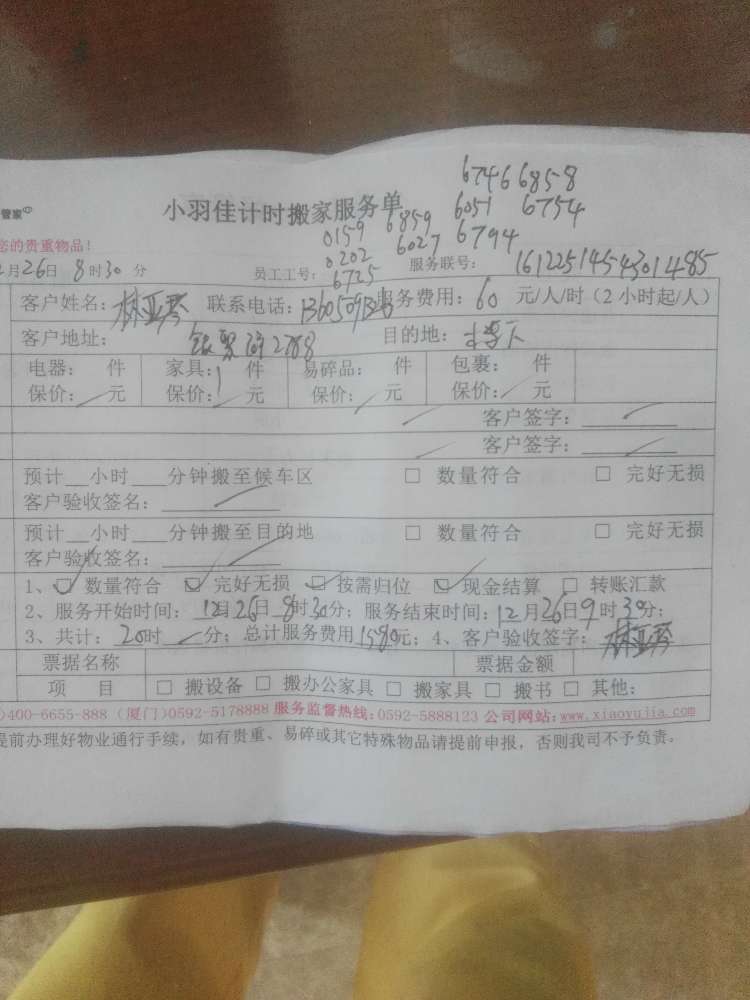 6746 6858
管家 小羽佳计时搬家服务单 6051 6754
您的贵重物品！ 0159 6859 6027 6794
月26日 8时30分 员工工号： 0202 6725 服务联号： 1612251454301485
客户姓名：林亚琴 联系电话： 服务费用：60 元/人/时（2小时起/人）
客户地址： 目的地：
电器： 件 家具：1 件 易碎品： 件 包裹： 件
保价： 元 保价： 元 保价： 元 保价： 元
客户签字：
客户签字：
预计__小时___分钟搬至候车区 □ 数量符合 □ 完好无损
客户验收签名：
预计__小时___分钟搬至目的地 □ 数量符合 □ 完好无损
客户验收签名：
1、☑ 数量符合 ☑ 完好无损 ☑ 按需归位 ☑ 现金结算 □ 转账汇款
2、服务开始时间：12月26日8时30分；服务结束时间：12月26日9时30分；
3、共计：20时 分；总计服务费用1580元；4、客户验收签字：林亚琴
票据名称 票据金额
项 目 □ 搬设备 □ 搬办公家具 □ 搬家具 □ 搬书 □ 其他：
)400-6655-888 (厦门)0592-5178888 服务监督热线:0592-5888123 公司网站:www.xiaoyujia.com
提前办理好物业通行手续，如有贵重、易碎或其它特殊物品请提前申报，否则我司不予负责。